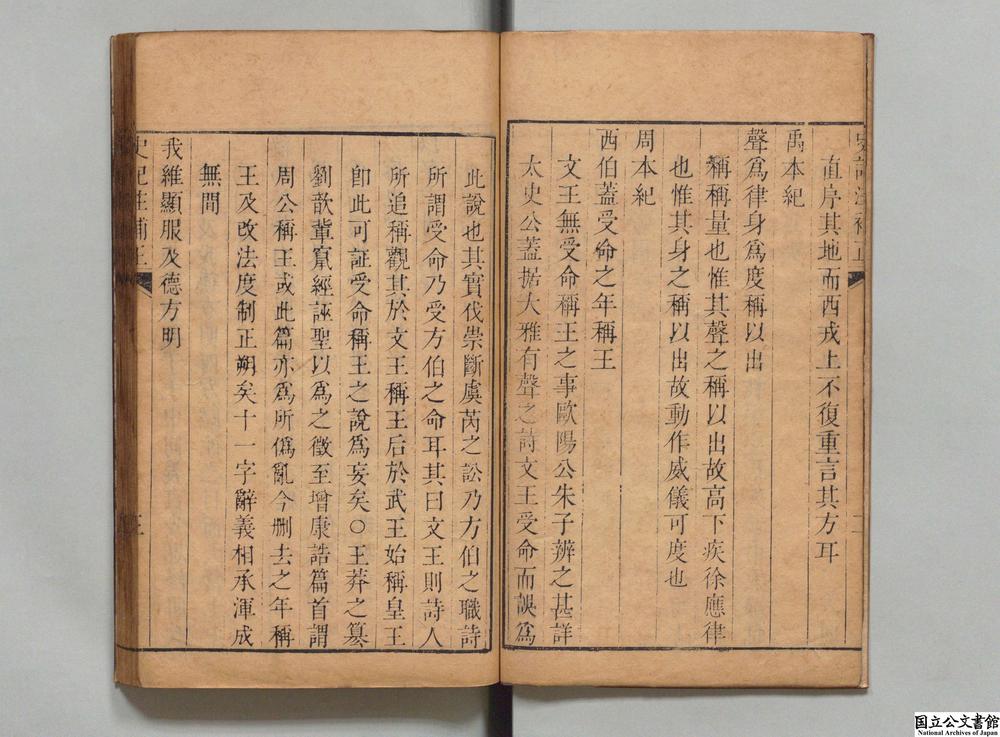 史記注補正
直序其地而西戎上不復重言其方耳
禹本紀
聲爲律身爲度稱以出
稱稱量也惟其聲之稱以出故高下疾徐應律
也惟其身之稱以出故動作威儀可度也
周本紀
西伯蓋受命之年稱王
文王無受命稱王之事歐陽公朱子辨之甚詳
太史公蓋据大雅有聲之詩文王受命而誤爲
此說也其實伐崇斷虞芮之訟乃方伯之職詩
所謂受命乃受方伯之命耳其曰文王則詩人
所追稱觀其於文王稱王后於武王始稱皇王
卽此可証受命稱王之說爲妄矣○王莽之簒
劉歆輩竄經誣聖以爲之徵至增康誥篇首謂
周公稱王或此篇亦爲所僞亂今刪去之年稱
王及改法度制正朔矣十一字辭義相承渾成
無間
我維顯服及德方明
史記注補正
三
国立公文書館
National Archives of Japan